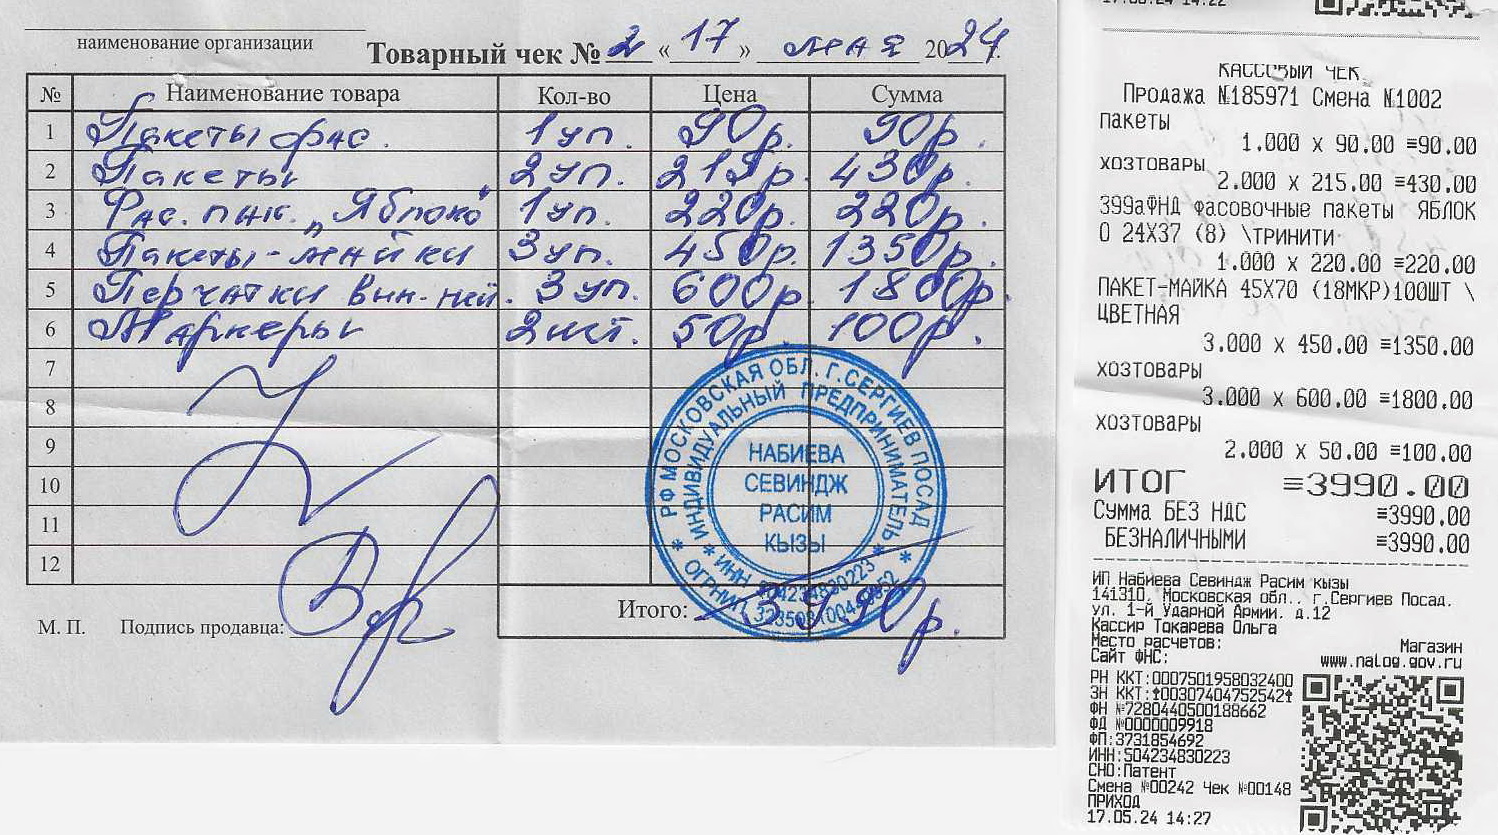 наименование организации
Товарный чек № 2 « 17 » мая 2024г.
№ Наименование товара Кол-во Цена Сумма
1 Пакеты фас. 1уп. 90р. 90р.
2 Пакеты 2уп. 215р. 430р.
3 Фас. пак. „Яблоко" 1уп. 220р. 220р.
4 Пакеты-майки 3уп. 450р. 1350р.
5 Перчатки вин-ные. 3уп. 600р. 1800р.
6 Маркеры 2шт. 50р. 100р.
7
8
9
10
11
12
Итого: 3990р.
М. П. Подпись продавца:
РФ МОСКОВСКАЯ ОБЛ. Г.СЕРГИЕВ ПОСАД
ИНДИВИДУАЛЬНЫЙ ПРЕДПРИНИМАТЕЛЬ
НАБИЕВА
СЕВИНДЖ
РАСИМ
КЫЗЫ
* ИНН 504234830223 *
* ОГРНИП
17.05.24 14:22
КАССОВЫЙ ЧЕК
Продажа №185971 Смена №1002
пакеты
1.000 x 90.00 ≡90.00
хозтовары
2.000 x 215.00 ≡430.00
399аФНД фасовочные пакеты ЯБЛОК
О 24X37 (8) \ТРИНИТИ
1.000 x 220.00 ≡220.00
ПАКЕТ-МАЙКА 45X70 (18МКР)100ШТ \
ЦВЕТНАЯ
3.000 x 450.00 ≡1350.00
хозтовары
3.000 x 600.00 ≡1800.00
хозтовары
2.000 x 50.00 ≡100.00
ИТОГ ≡3990.00
Сумма БЕЗ НДС ≡3990.00
БЕЗНАЛИЧНЫМИ ≡3990.00
ИП Набиева Севиндж Расим кызы
141310, Московская обл., г.Сергиев Посад,
ул. 1-й Ударной Армии, д.12
Кассир Токарева Ольга
Место расчетов: Магазин
Сайт ФНС: www.nalog.gov.ru
РН ККТ:0007501958032400
ЗН ККТ:↑00307404752542↑
ФН №7280440500188662
ФД №0000009918
ФП:3731854692
ИНН:504234830223
СНО:Патент
Смена №00242 Чек №00148
ПРИХОД
17.05.24 14:27